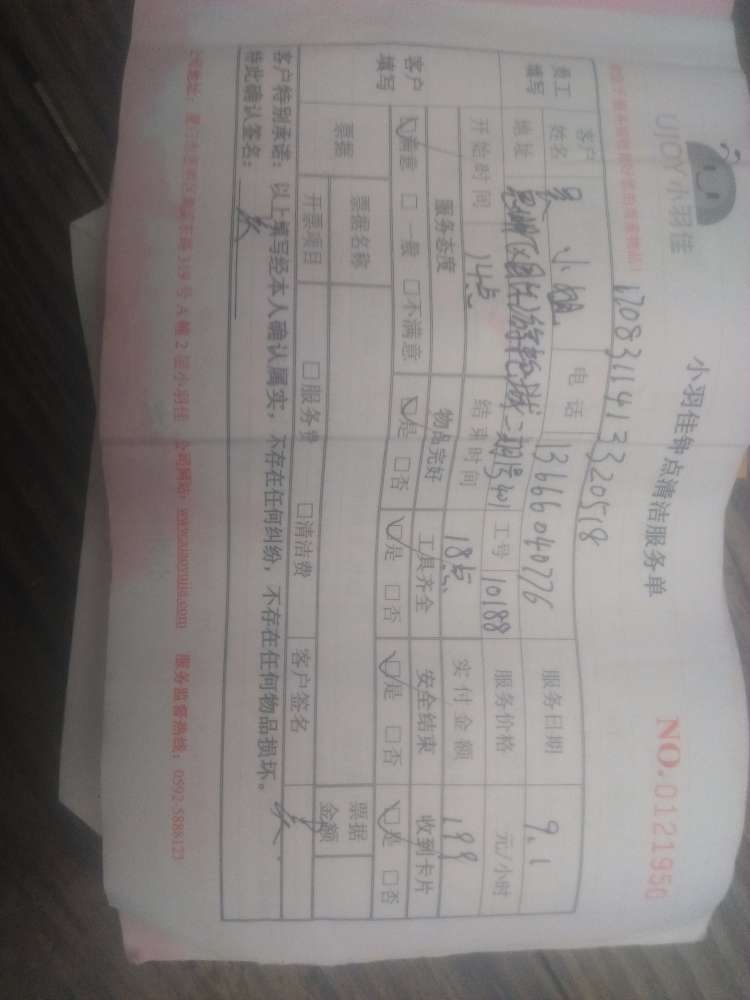 UJOY小羽佳
小羽佳钟点清洁服务单
NO.0121950
1708311413320518
员工填写
客户姓名 吴小姐 电话 13666040776 服务日期 9.1
地址 二期 401 工号 10188 服务价格 元/小时
开始时间 14点 结束时间 18点 实付金额 199
客户填写
服务态度 物品完好 工具齐全 安全结束 收到卡片
☑满意 □一般 □不满意 ☑是 □否 ☑是 □否 ☑是 □否 ☑是 □否
票据 票据名称 票据金额
开票项目 □服务费 □清洁费 客户签名
客户特别承诺:以上填写经本人确认属实,不存在任何纠纷,不存在任何物品损坏。
特此确认签名:
319号A幢2层小羽佳 公司网站:www.xiaoyujia.com 服务监督热线:0592-5888123